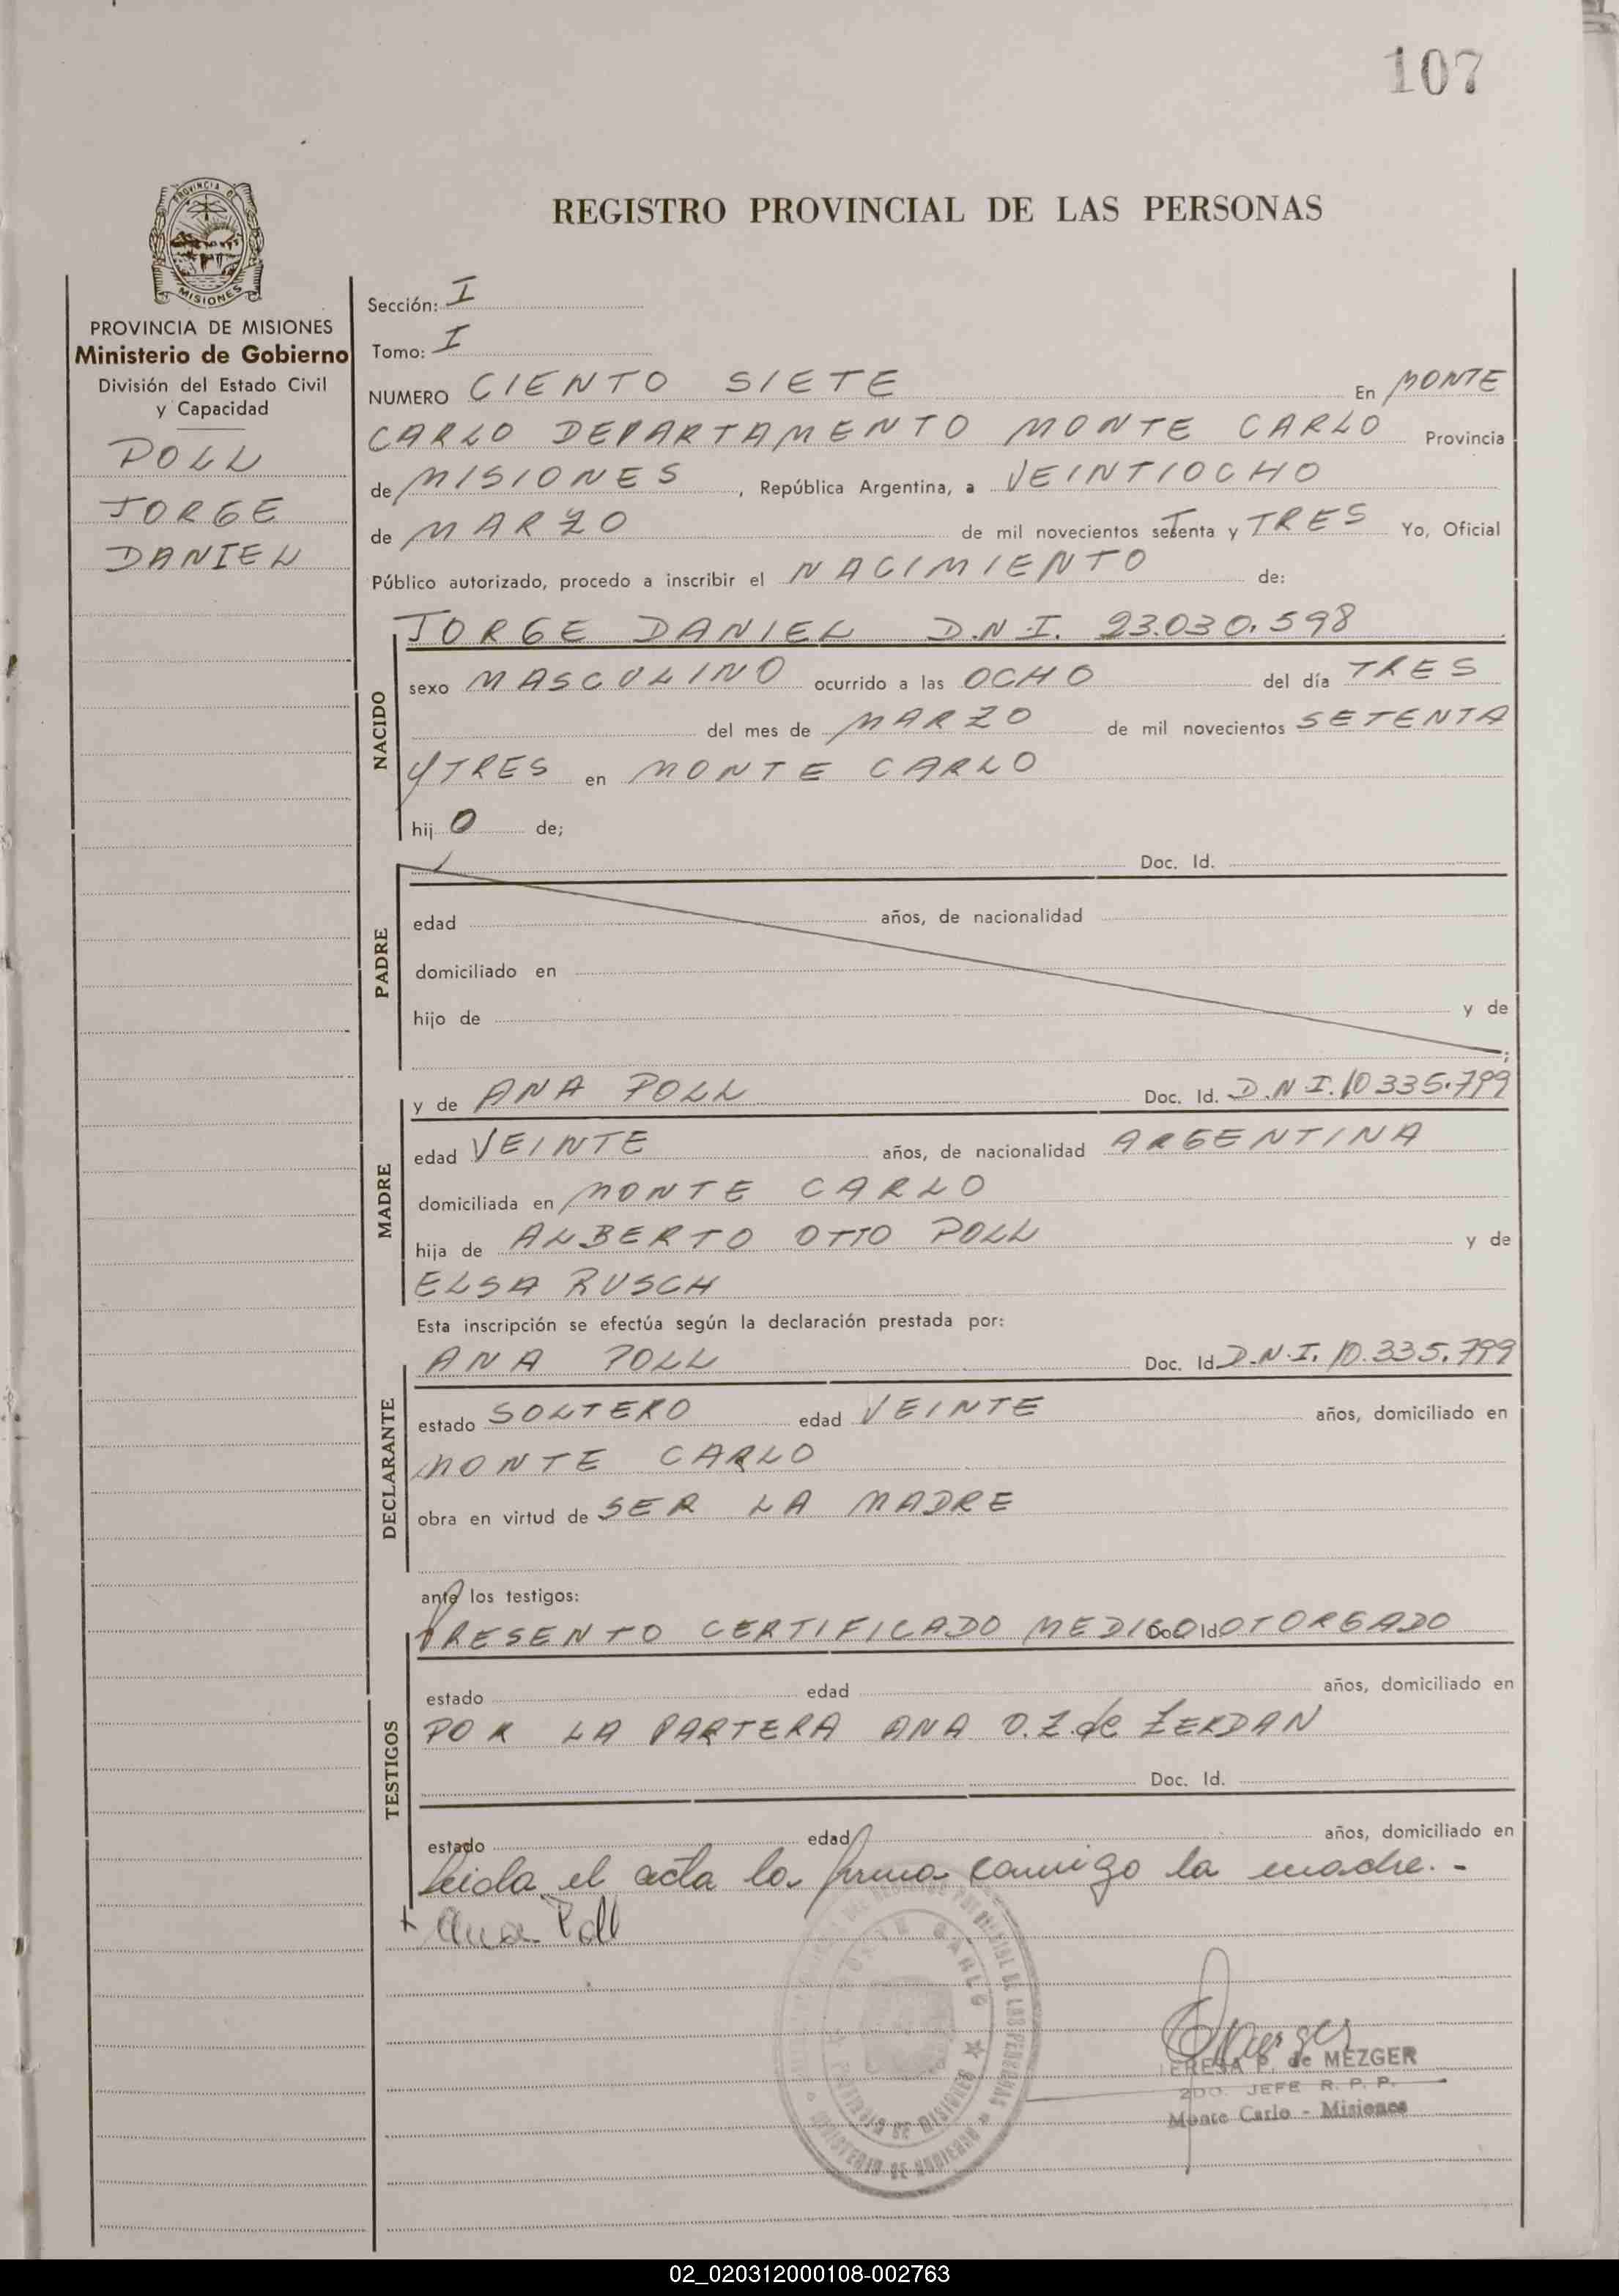 107
PROVINCIA DE
MISIONES
REGISTRO PROVINCIAL DE LAS PERSONAS
PROVINCIA DE MISIONES
Ministerio de Gobierno
División del Estado Civil
y Capacidad
POLL
JORGE
DANIEL
Sección: I
Tomo: I
NUMERO CIENTO SIETE En MONTE
CARLO DEPARTAMENTO MONTE CARLO Provincia
de MISIONES, República Argentina, a VEINTIOCHO
de MARZO de mil novecientos setenta y TRES Yo, Oficial
Público autorizado, procedo a inscribir el NACIMIENTO de:
NACIDO
JORGE DANIEL D.N.I. 23.030.598
sexo MASCULINO ocurrido a las OCHO del día TRES
del mes de MARZO de mil novecientos SETENTA
Y TRES en MONTE CARLO
hij O de;
PADRE
Doc. Id.
edad años, de nacionalidad
domiciliado en
hijo de y de
;
MADRE
y de ANA POLL Doc. Id. D.N.I. 10.335.799
edad VEINTE años, de nacionalidad ARGENTINA
domiciliada en MONTE CARLO
hija de ALBERTO OTTO POLL y de
ELSA RUSCH
Esta inscripción se efectúa según la declaración prestada por:
DECLARANTE
ANA POLL Doc. Id. D.N.I. 10.335.799
estado SOLTERO edad VEINTE años, domiciliado en
MONTE CARLO
obra en virtud de SER LA MADRE
ante los testigos:
TESTIGOS
PRESENTO CERTIFICADO MEDICO Doc. Id. OTORGADO
estado edad años, domiciliado en
POR LA PARTERA ANA O. Z. de ZERDAN
Doc. Id.
estado edad años, domiciliado en
Leida el acta la firma conmigo la madre.-
+ Ana Poll
MONTE CARLO
PROVINCIAL DE LAS PERSONAS
PROVINCIA DE MISIONES
MINISTERIO DE GOBIERNO
TERESA P. de MEZGER
2DO. JEFE R. P. P.
Monte Carlo - Misiones
02_020312000108-002763